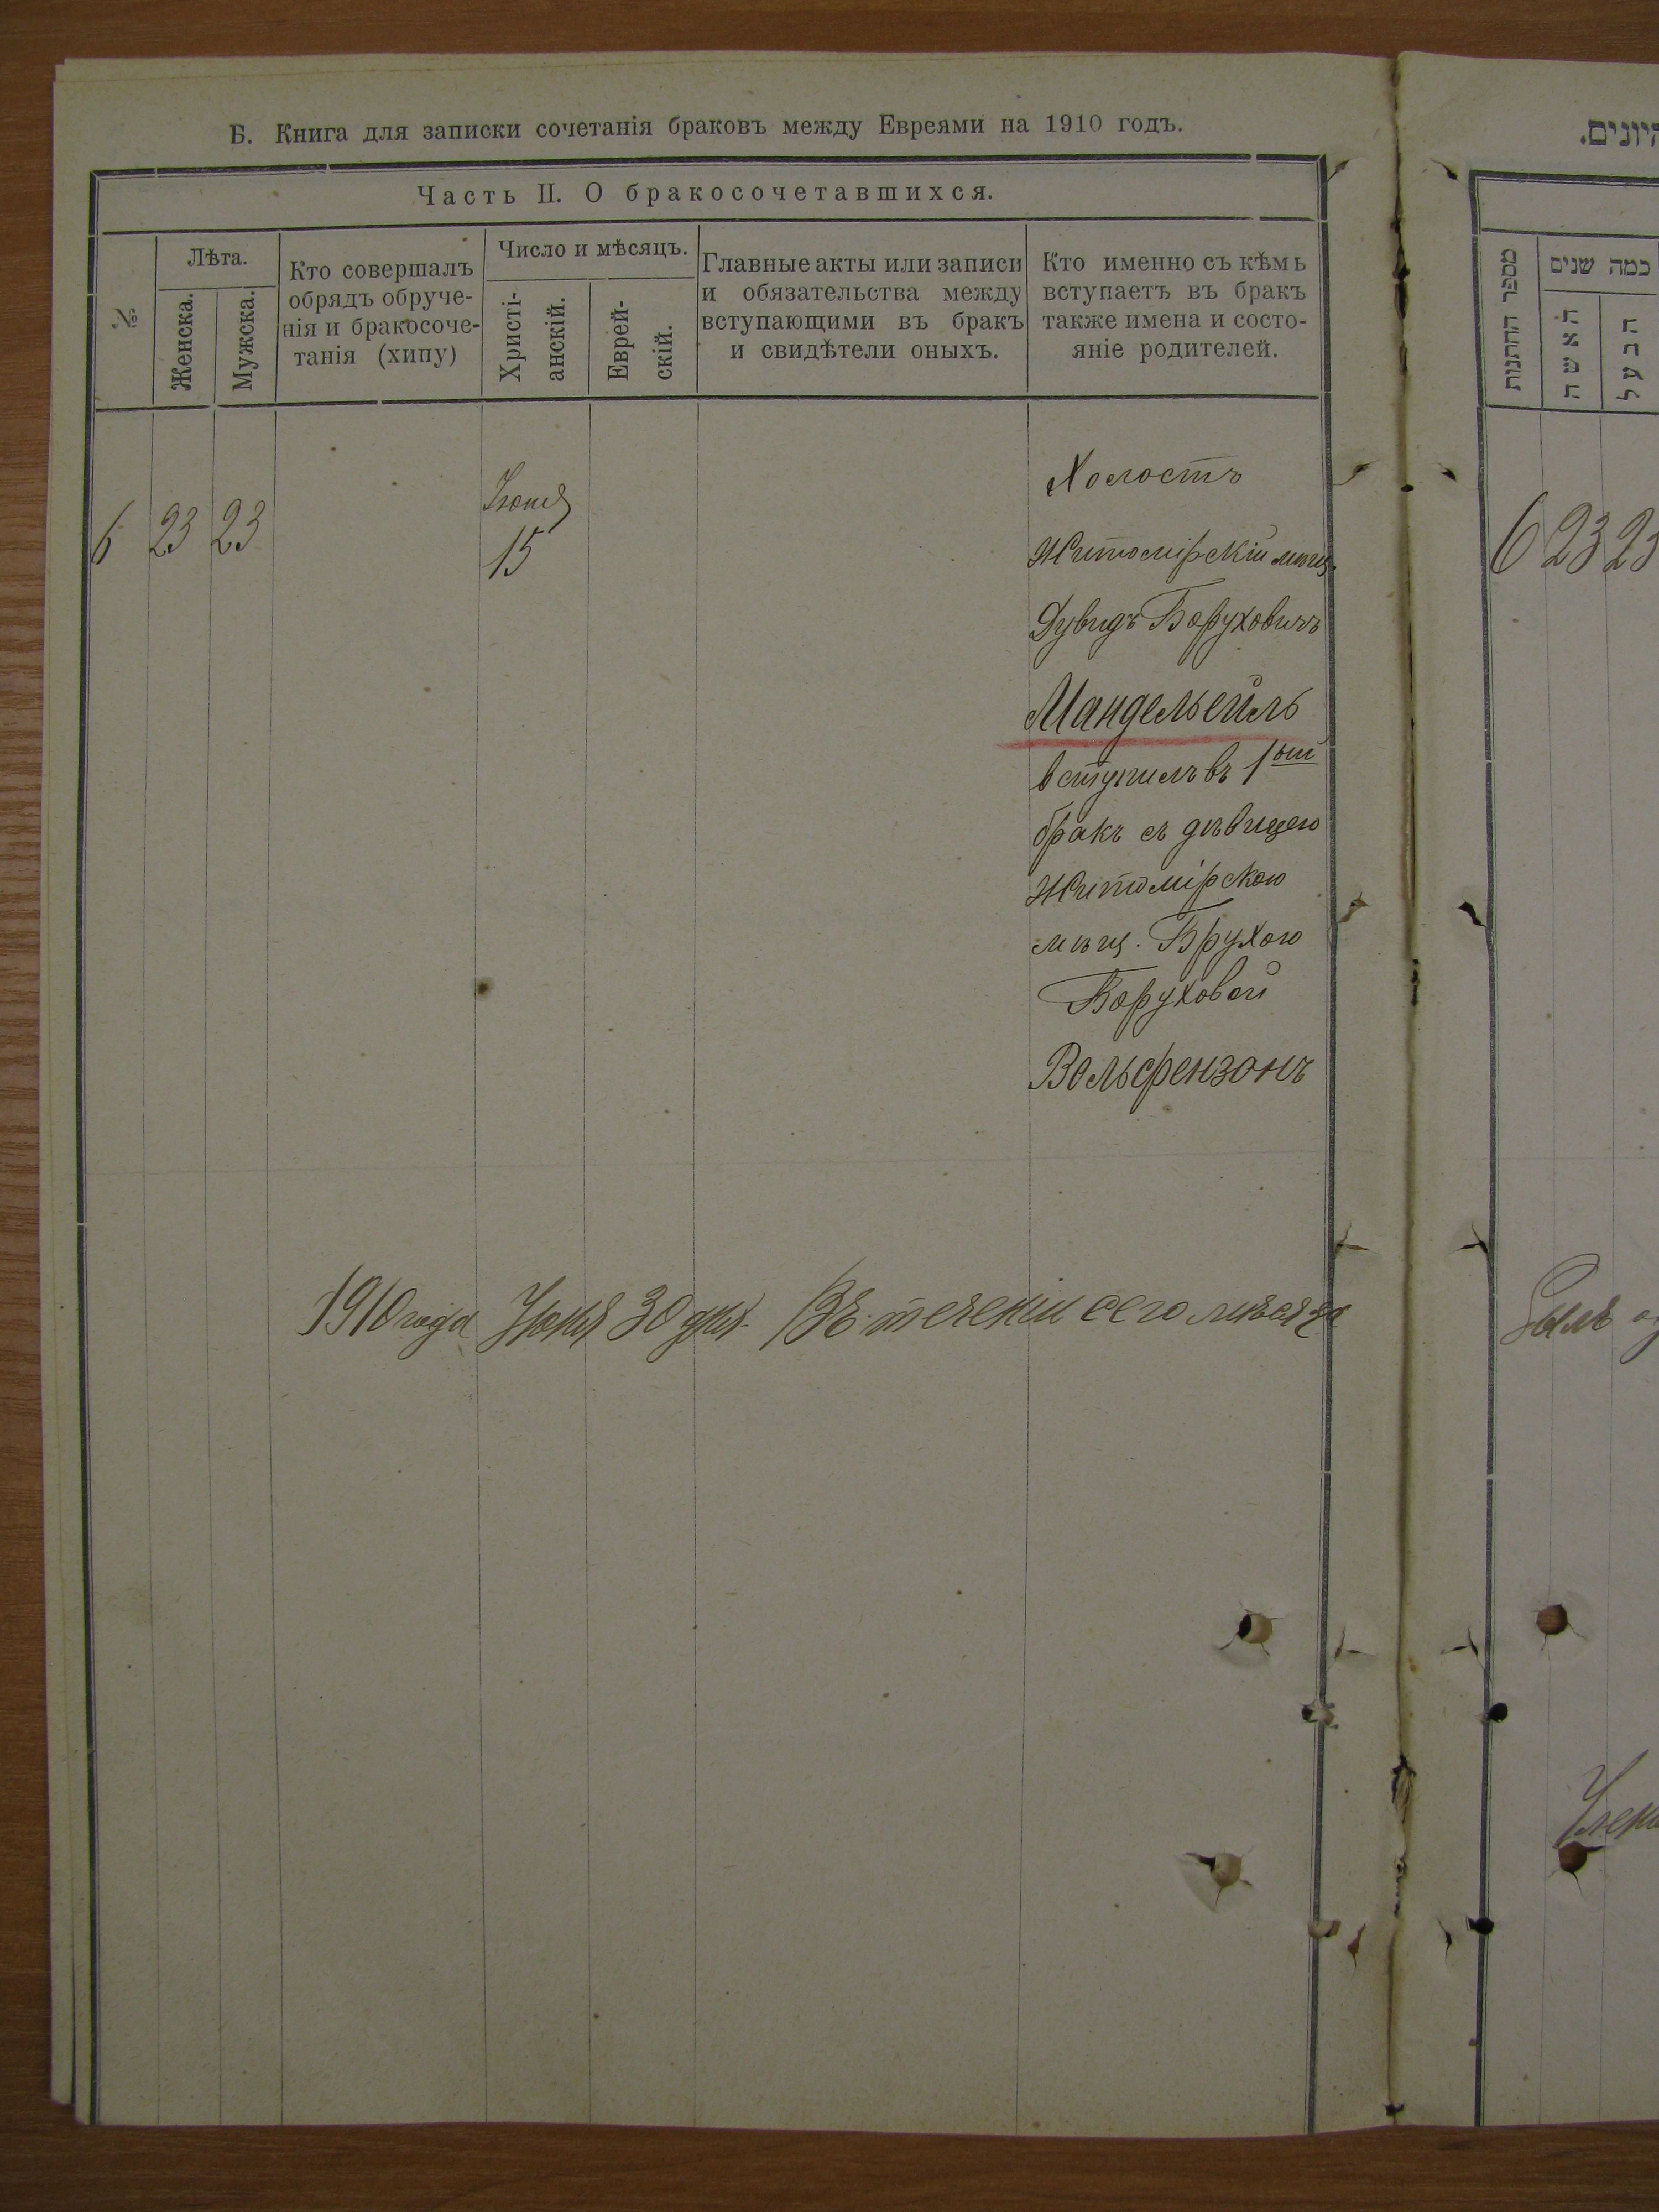 Б. Книга для записки сочетанія браковъ между Евреями на 1910 годъ.
Часть II. О бракосочетавшихся.
№
Лѣта.
Женска.
Мужска.
Кто совершалъ
обрядъ обруче-
нія и бракосоче-
танія (хипу)
Число и мѣсяцъ.
Христі-
анскій.
Еврей-
скій.
Главные акты или записи
и обязательства между
вступающими въ бракъ
и свидѣтели оныхъ.
Кто именно съ кѣмъ
вступаетъ въ бракъ
также имена и состо-
яніе родителей.
6 23 23
Іюня
15
Холостъ
Житомірскій мѣщ.
Дувидъ Боруховичъ
Мандельейль
вступилъ въ 1ый
бракъ съ дѣвицею
Житомірскою
мѣщ. Брухою
Боруховой
Вольфензонъ
1910 года Іюня 30 дня. Въ теченіи сего мѣсяца
מספר החתנות
כמה שנים
האשה
הבעל
6 23 23